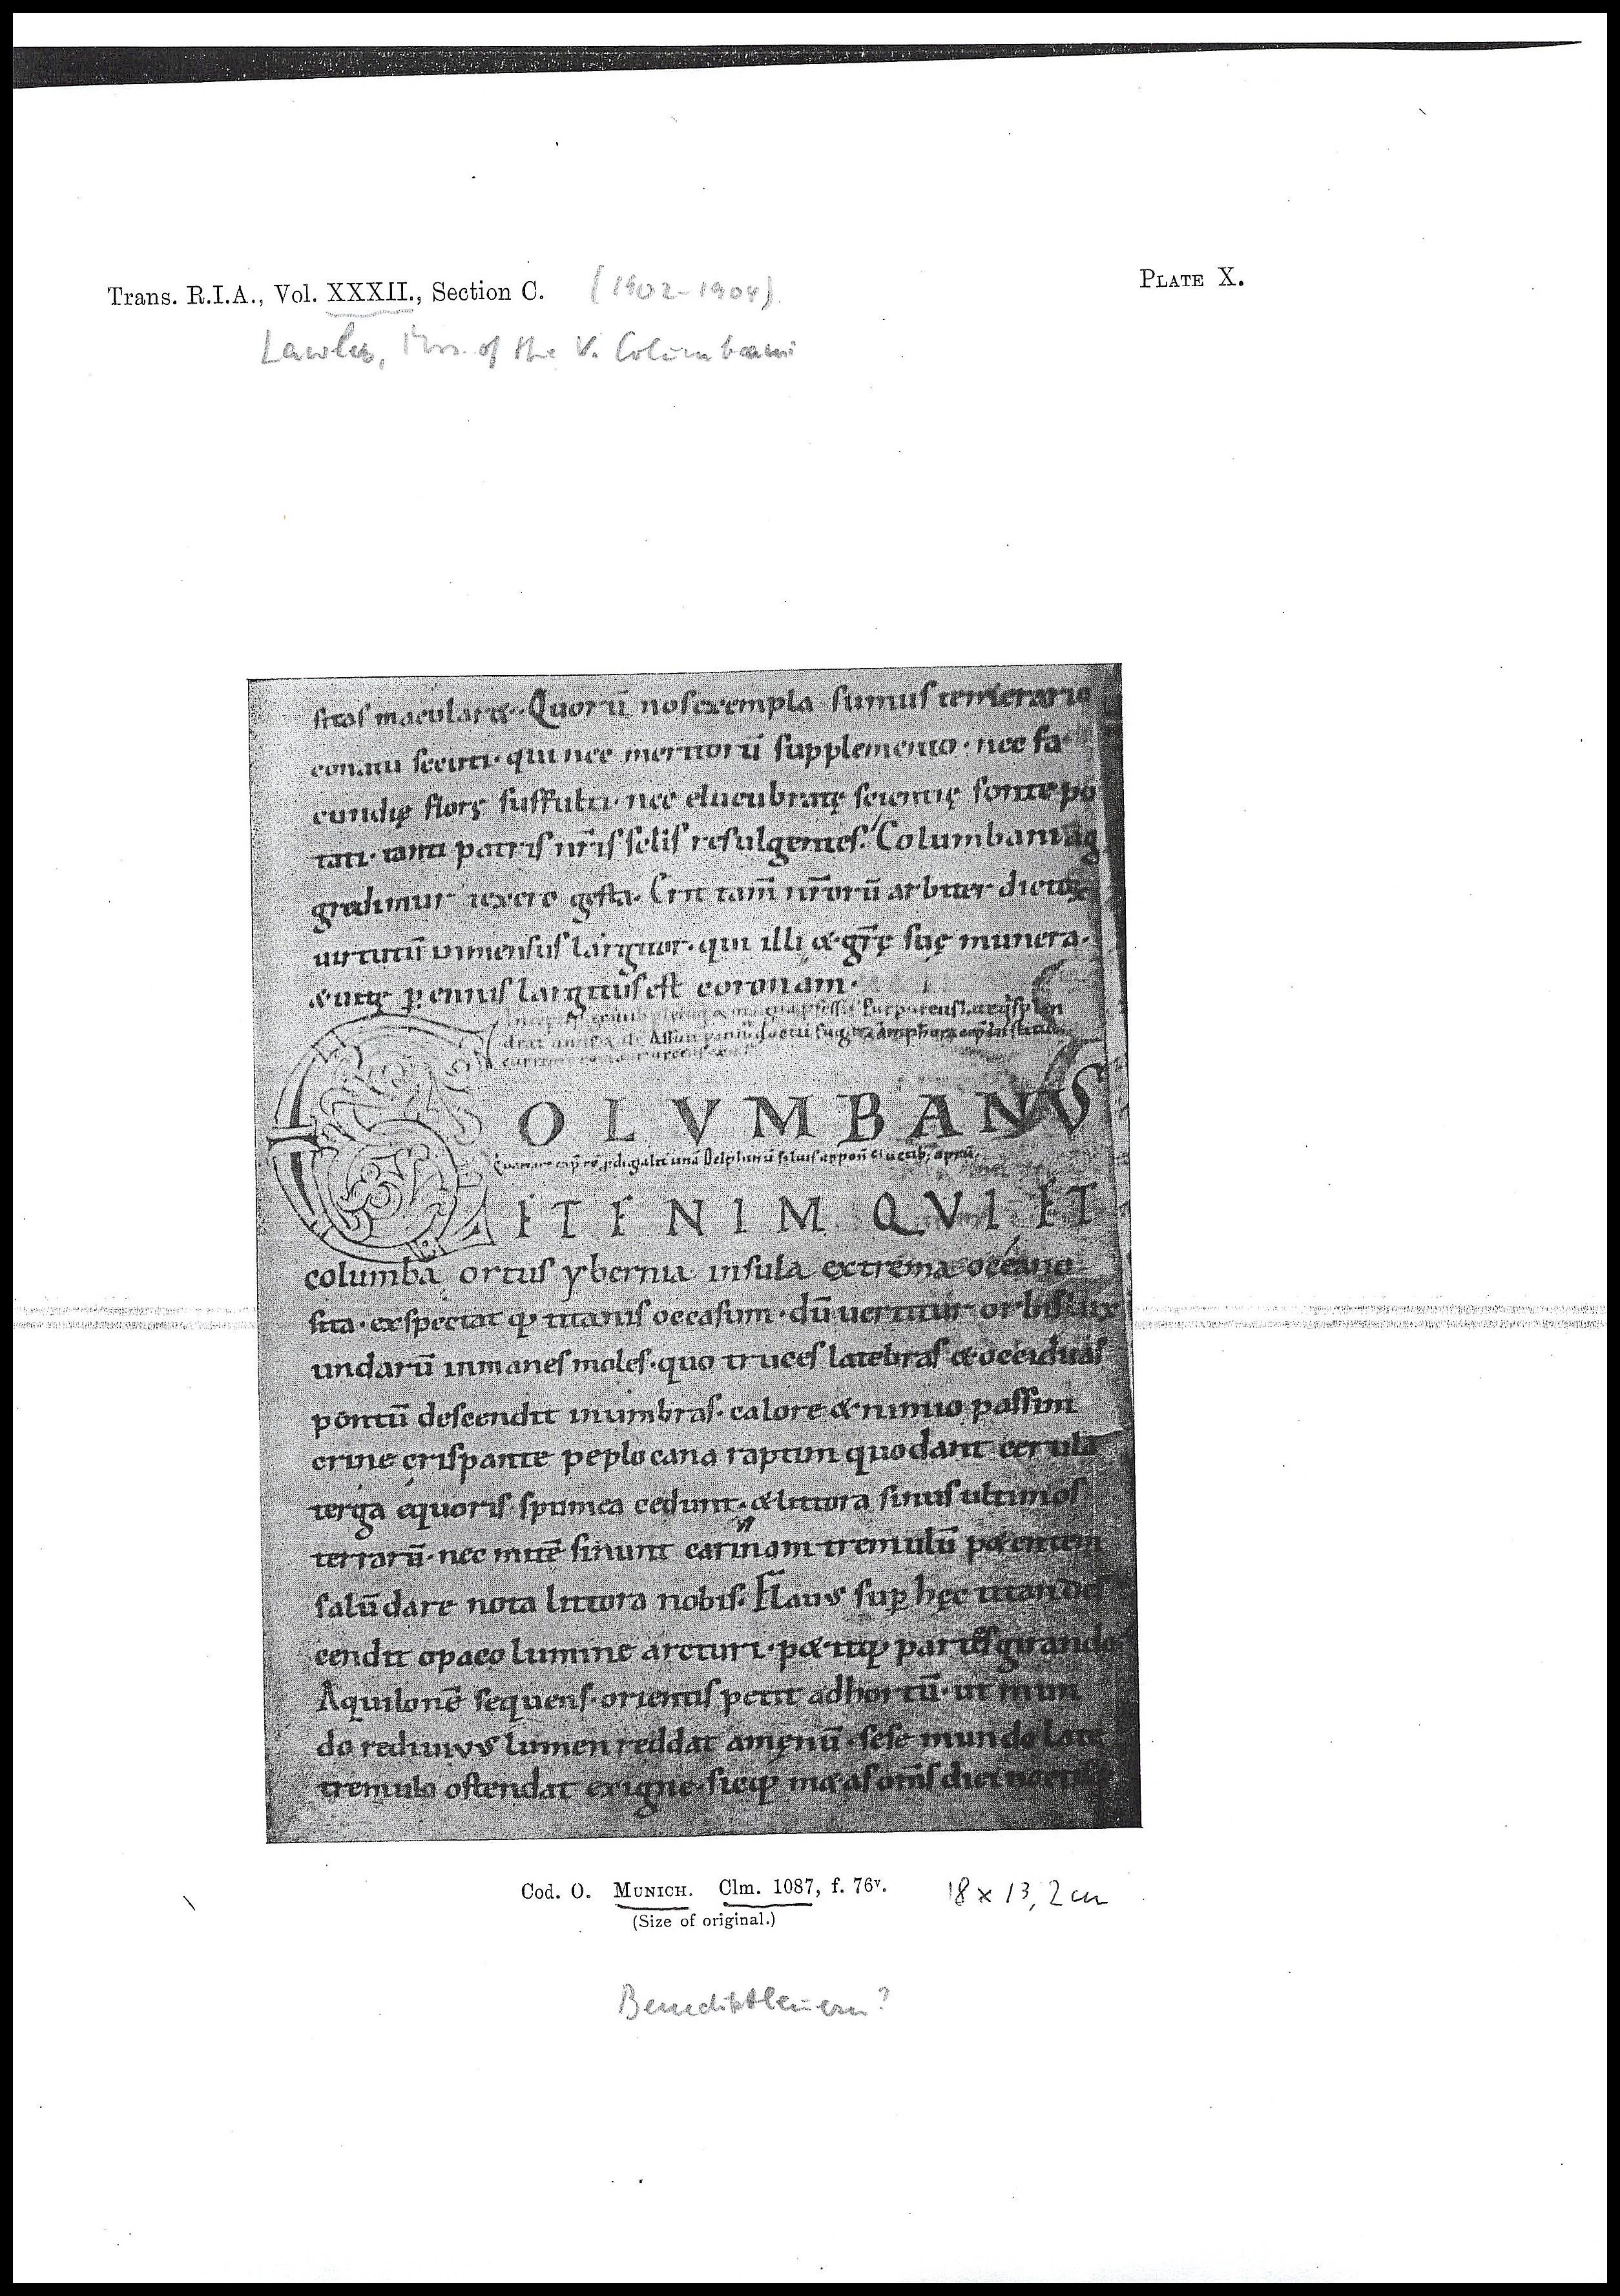 Trans. R.I.A., Vol. XXXII., Section C. (1902-1904).
PLATE X.
Lawlor, Mss. of the V. Columbani
sitos macularet. Quorū nos exempla sumus temerario
conatu secuti· qui nec meritorū supplemento· nec fa
cundię florę suffulti· nec elucubratę scientię fonte po
tati· tanti patris nr̄is sc̄lis refulgentes. Columbani ag
gredimur texere gesta. Erit tam̄ nr̄orū arbiter dictoꝝ
uirtutū inmensus largitor· qui illi & gr̄ę suę munera·
& uitę ꝑennis largitus est coronam·
OLVMBANVS
Delphinū siluis
ITENIM QVI ET
columba ortus ybernia insula extrema oceano
sita· exspectat qꝫ titanis occasum· dū uertitur orbis lux
undarū inmanes moles· quo truces latebras & occiduas
pontū descendit in umbras· calore & nimio passim
crine crispante peplo cana raptim quo dant cerula
terga equoris spumea cedunt· & littora sinus ultimos
terrarū· nec mitē sinunt carinam tremulū pꝗentem
salū dare nota littora nobis. Flauus suꝑ hęc titan des
cendit opaco lumine arcturi· p&itqꝫ partes girando
Aquilonē sequens· orientis petit ad hortū· ut mun
do rediuiuus lumen reddat amęnū· sese mundo late
tremulo ostendat ex igne· sicqꝫ m&as om̄s diei noctis
Cod. O. MUNICH. Clm. 1087, f. 76ᵛ. 18 x 13,2 cm
(Size of original.)
Benediktbeuern?